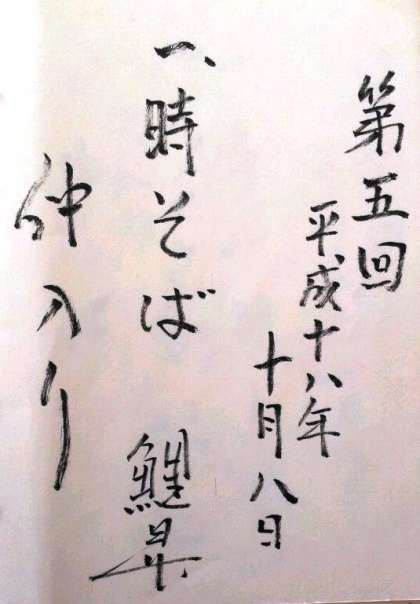 第五回
平成十八年
十月八日
一、時そば 鯉昇
仲入り